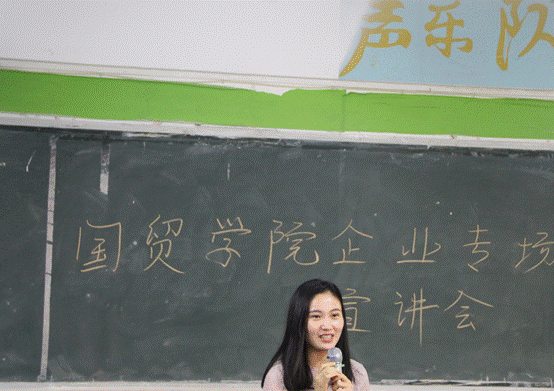 声乐队
国贸学院企业专场
宣讲会